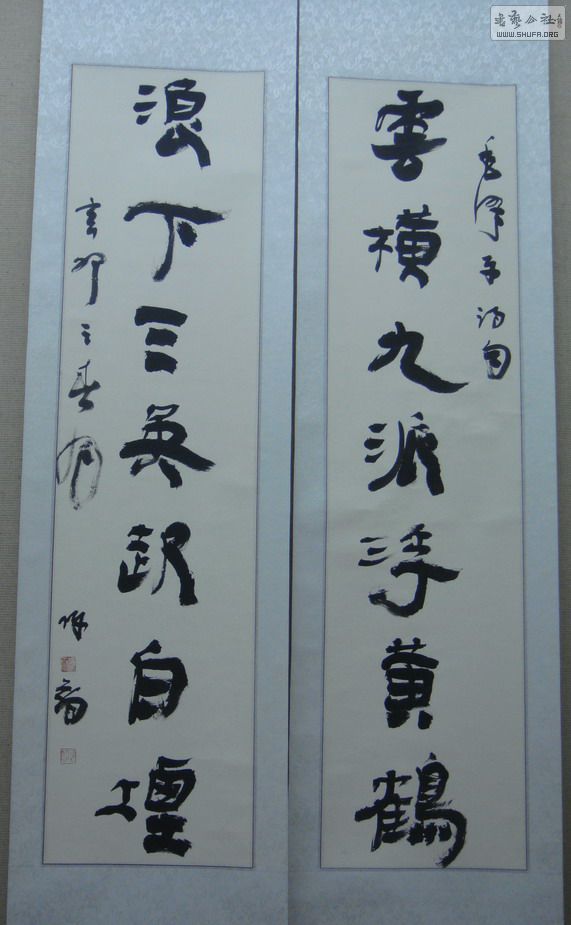 書藝公社
WWW.SHUFA.ORG
毛澤東詩句
雲橫九派浮黃鶴
浪下三吳起白煙
辛卯之春月